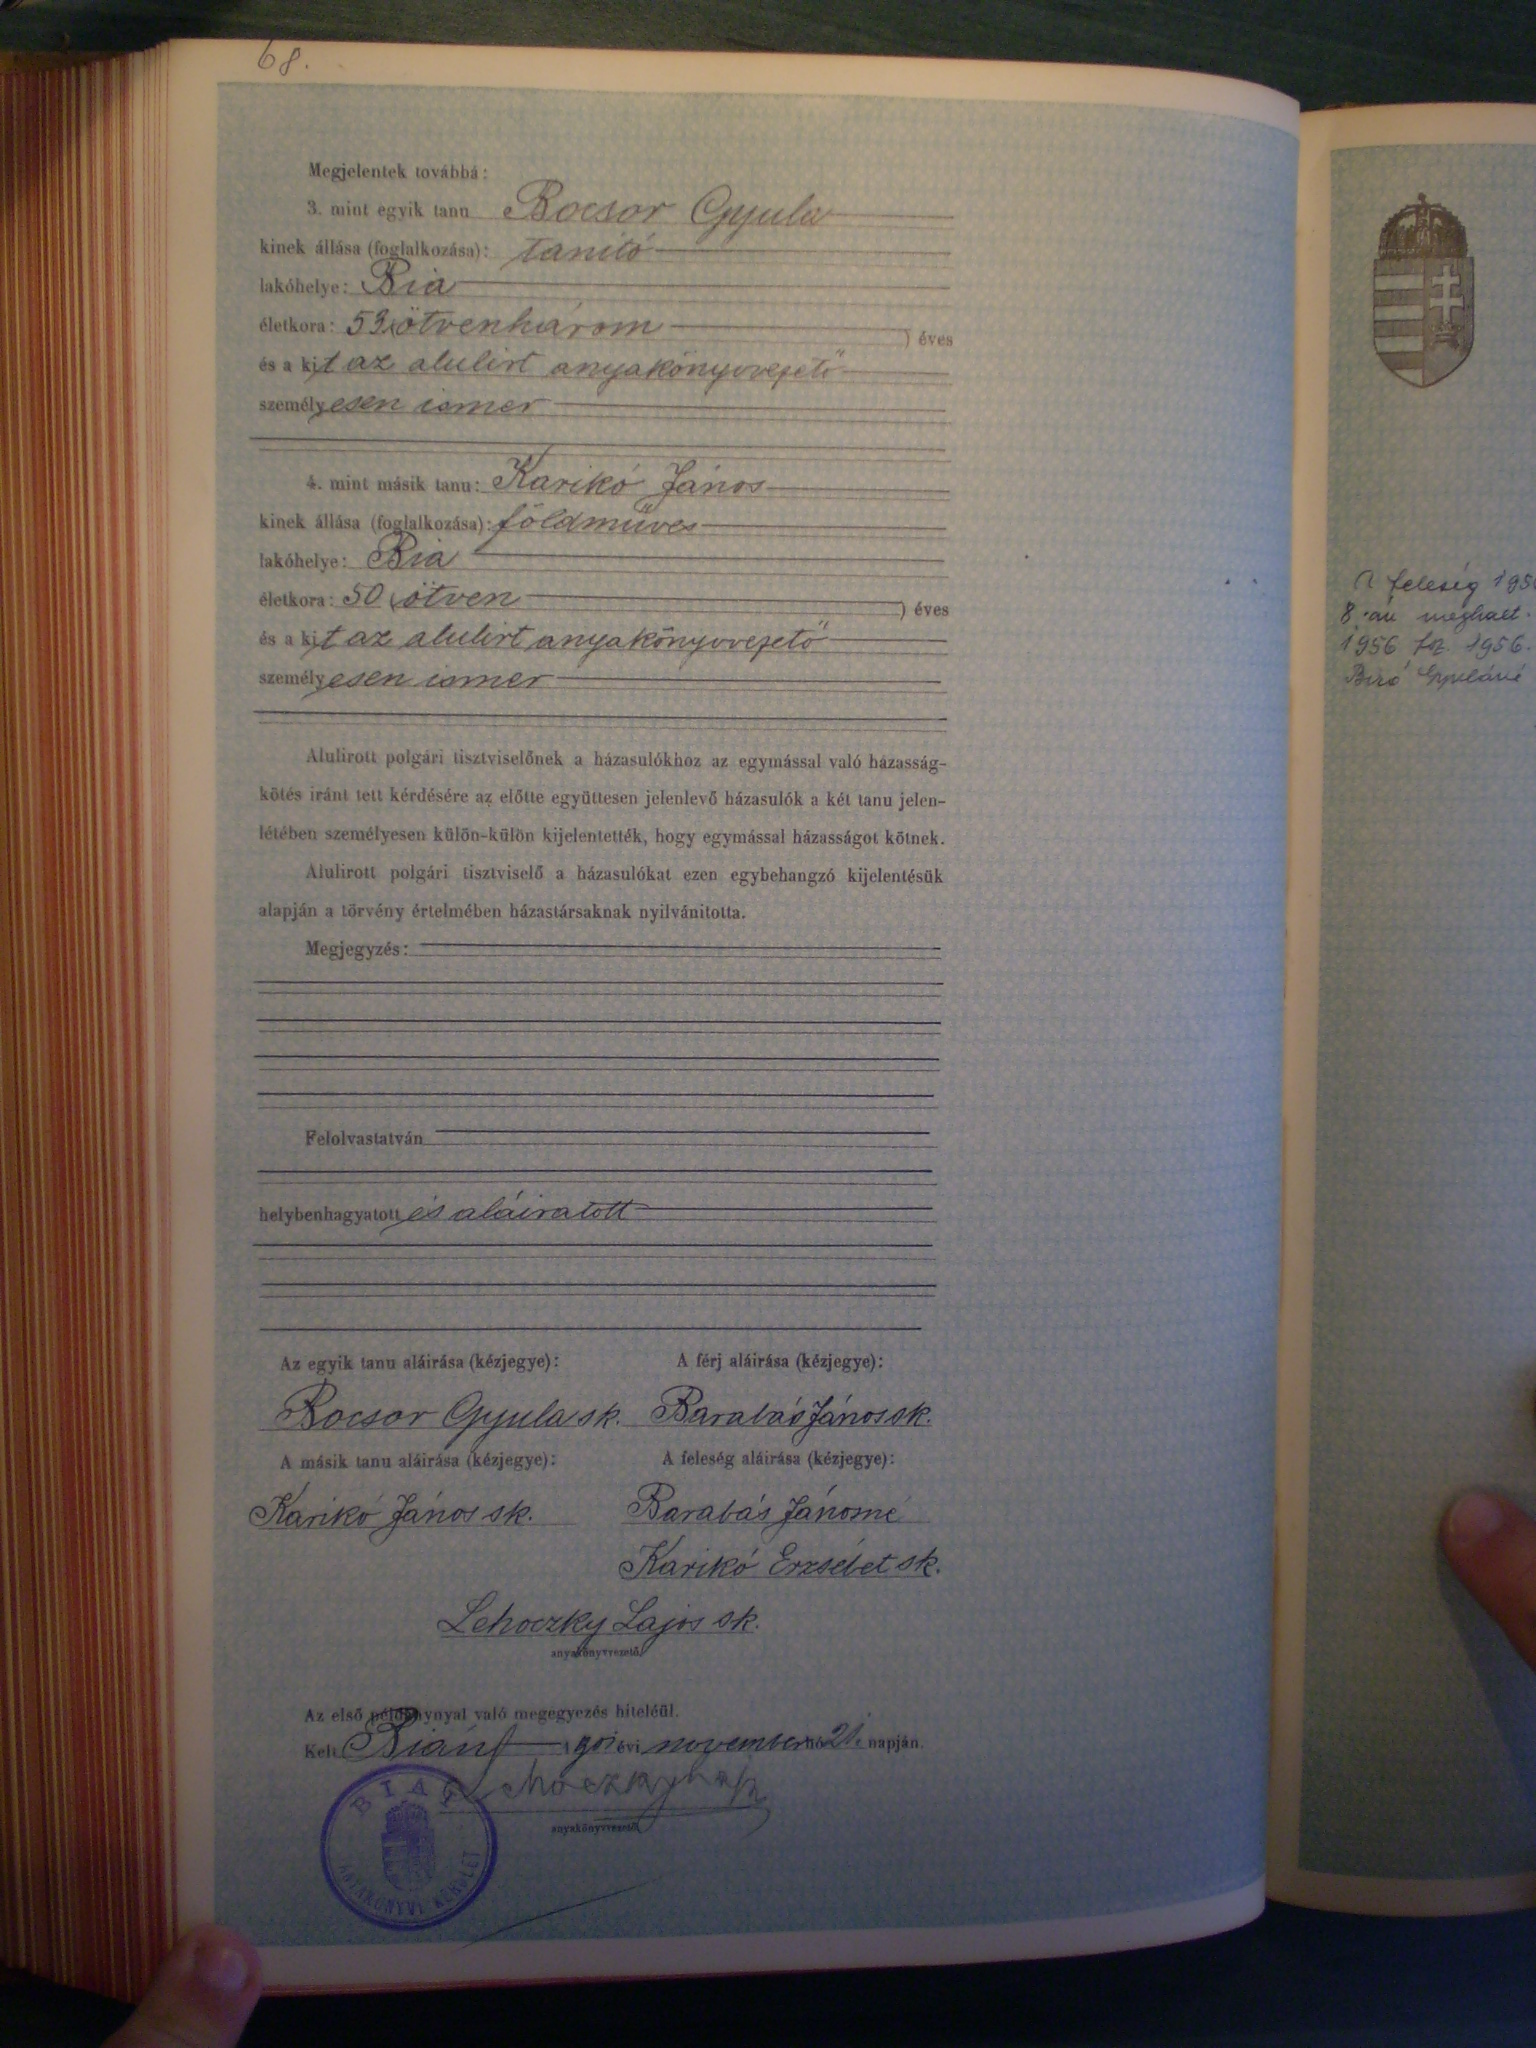 68.
Megjelentek továbbá:
3. mint egyik tanu Bocsor Gyula
kinek állása (foglalkozása): tanító
lakóhelye: Bia
életkora: 53 (ötvenhárom ) éves
és a kit az alulirt anyakönyvvezető
személyesen ismer
4. mint másik tanu: Karikó János
kinek állása (foglalkozása): földműves
lakóhelye: Bia
életkora: 50 (ötven ) éves
és a kit az alulirt anyakönyvvezető
személyesen ismer
Alulirott polgári tisztviselőnek a házasulókhoz az egymással való házasság-
kötés iránt tett kérdésére az előtte együttesen jelenlevő házasulók a két tanu jelen-
létében személyesen külön-külön kijelentették, hogy egymással házasságot kötnek.
Alulirott polgári tisztviselő a házasulókat ezen egybehangzó kijelentésük
alapján a törvény értelmében házastársaknak nyilvánitotta.
Megjegyzés:
Felolvastatván
helybenhagyatott és aláiratott
Az egyik tanu aláirása (kézjegye): A férj aláirása (kézjegye):
Bocsor Gyula sk. Barabás János sk.
A másik tanu aláirása (kézjegye): A feleség aláirása (kézjegye):
Karikó János sk. Barabás Jánosné
Karikó Erzsébet sk.
Lehoczky Lajos sk.
anyakönyvvezető.
Az első példánynyal való megegyezés hiteléül.
Kelt Bián 1901 évi november hó 21. napján.
anyakönyvvezető.
BIAI
ANYAKÖNYVI KERÜLET
A feleség 195
8.-án meghalt.
1956 1956.
Biró Gyuláné